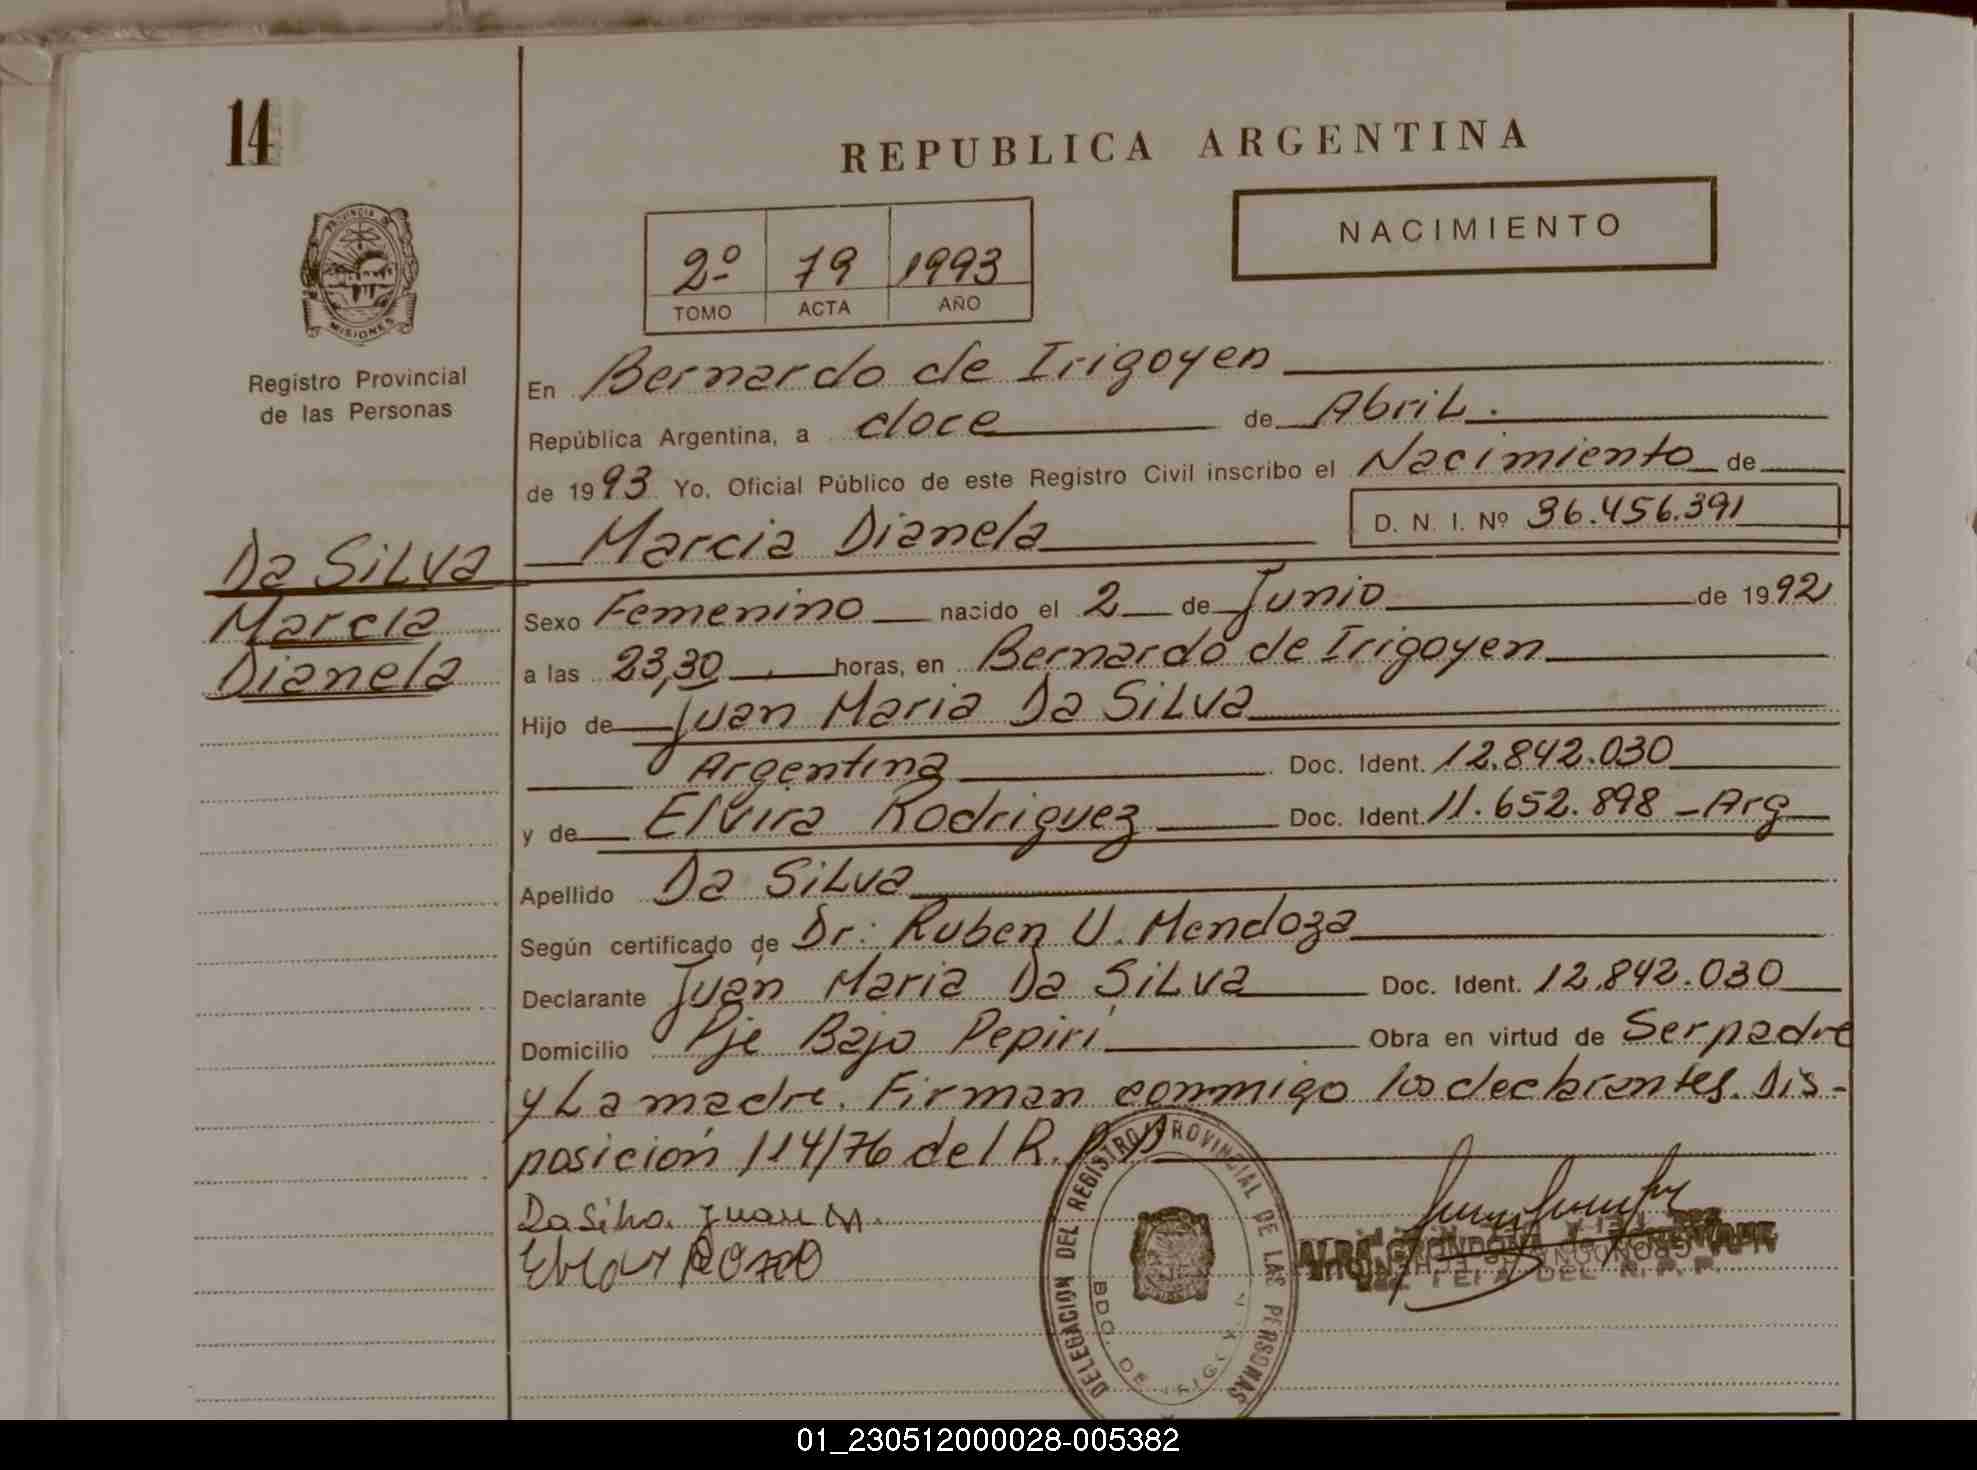 14
REPUBLICA ARGENTINA
NACIMIENTO
2º 79 1993
TOMO ACTA AÑO
PROVINCIA DE
MISIONES
Registro Provincial
de las Personas
En Bernardo de Irigoyen
República Argentina, a doce de Abril.
de 1993 Yo, Oficial Público de este Registro Civil inscribo el Nacimiento de
Marcia Dianela D. N. I. Nº 36.456.391
Da Silva
Marcia
Dianela
Sexo Femenino nacido el 2 de Junio de 1992
a las 23,30 horas, en Bernardo de Irigoyen
Hijo de Juan Maria Da Silva
Argentina Doc. Ident. 12.842.030
y de Elvira Rodriguez Doc. Ident. 11.652.898 - Arg
Apellido Da Silva
Según certificado de Dr: Ruben U. Mendoza
Declarante Juan Maria Da Silva Doc. Ident. 12.842.030
Domicilio Pje Bajo Pepirí Obra en virtud de Ser padre
y La madre. Firman conmigo los declarantes. Dis-
posición 114/76 del R.P.P
Da Silva Juan M.
DELEGACION DEL REGISTRO PROVINCIAL DE LAS PERSONAS
BDO. DE IRIGOYEN
DEL R. P. P.
01_230512000028-005382